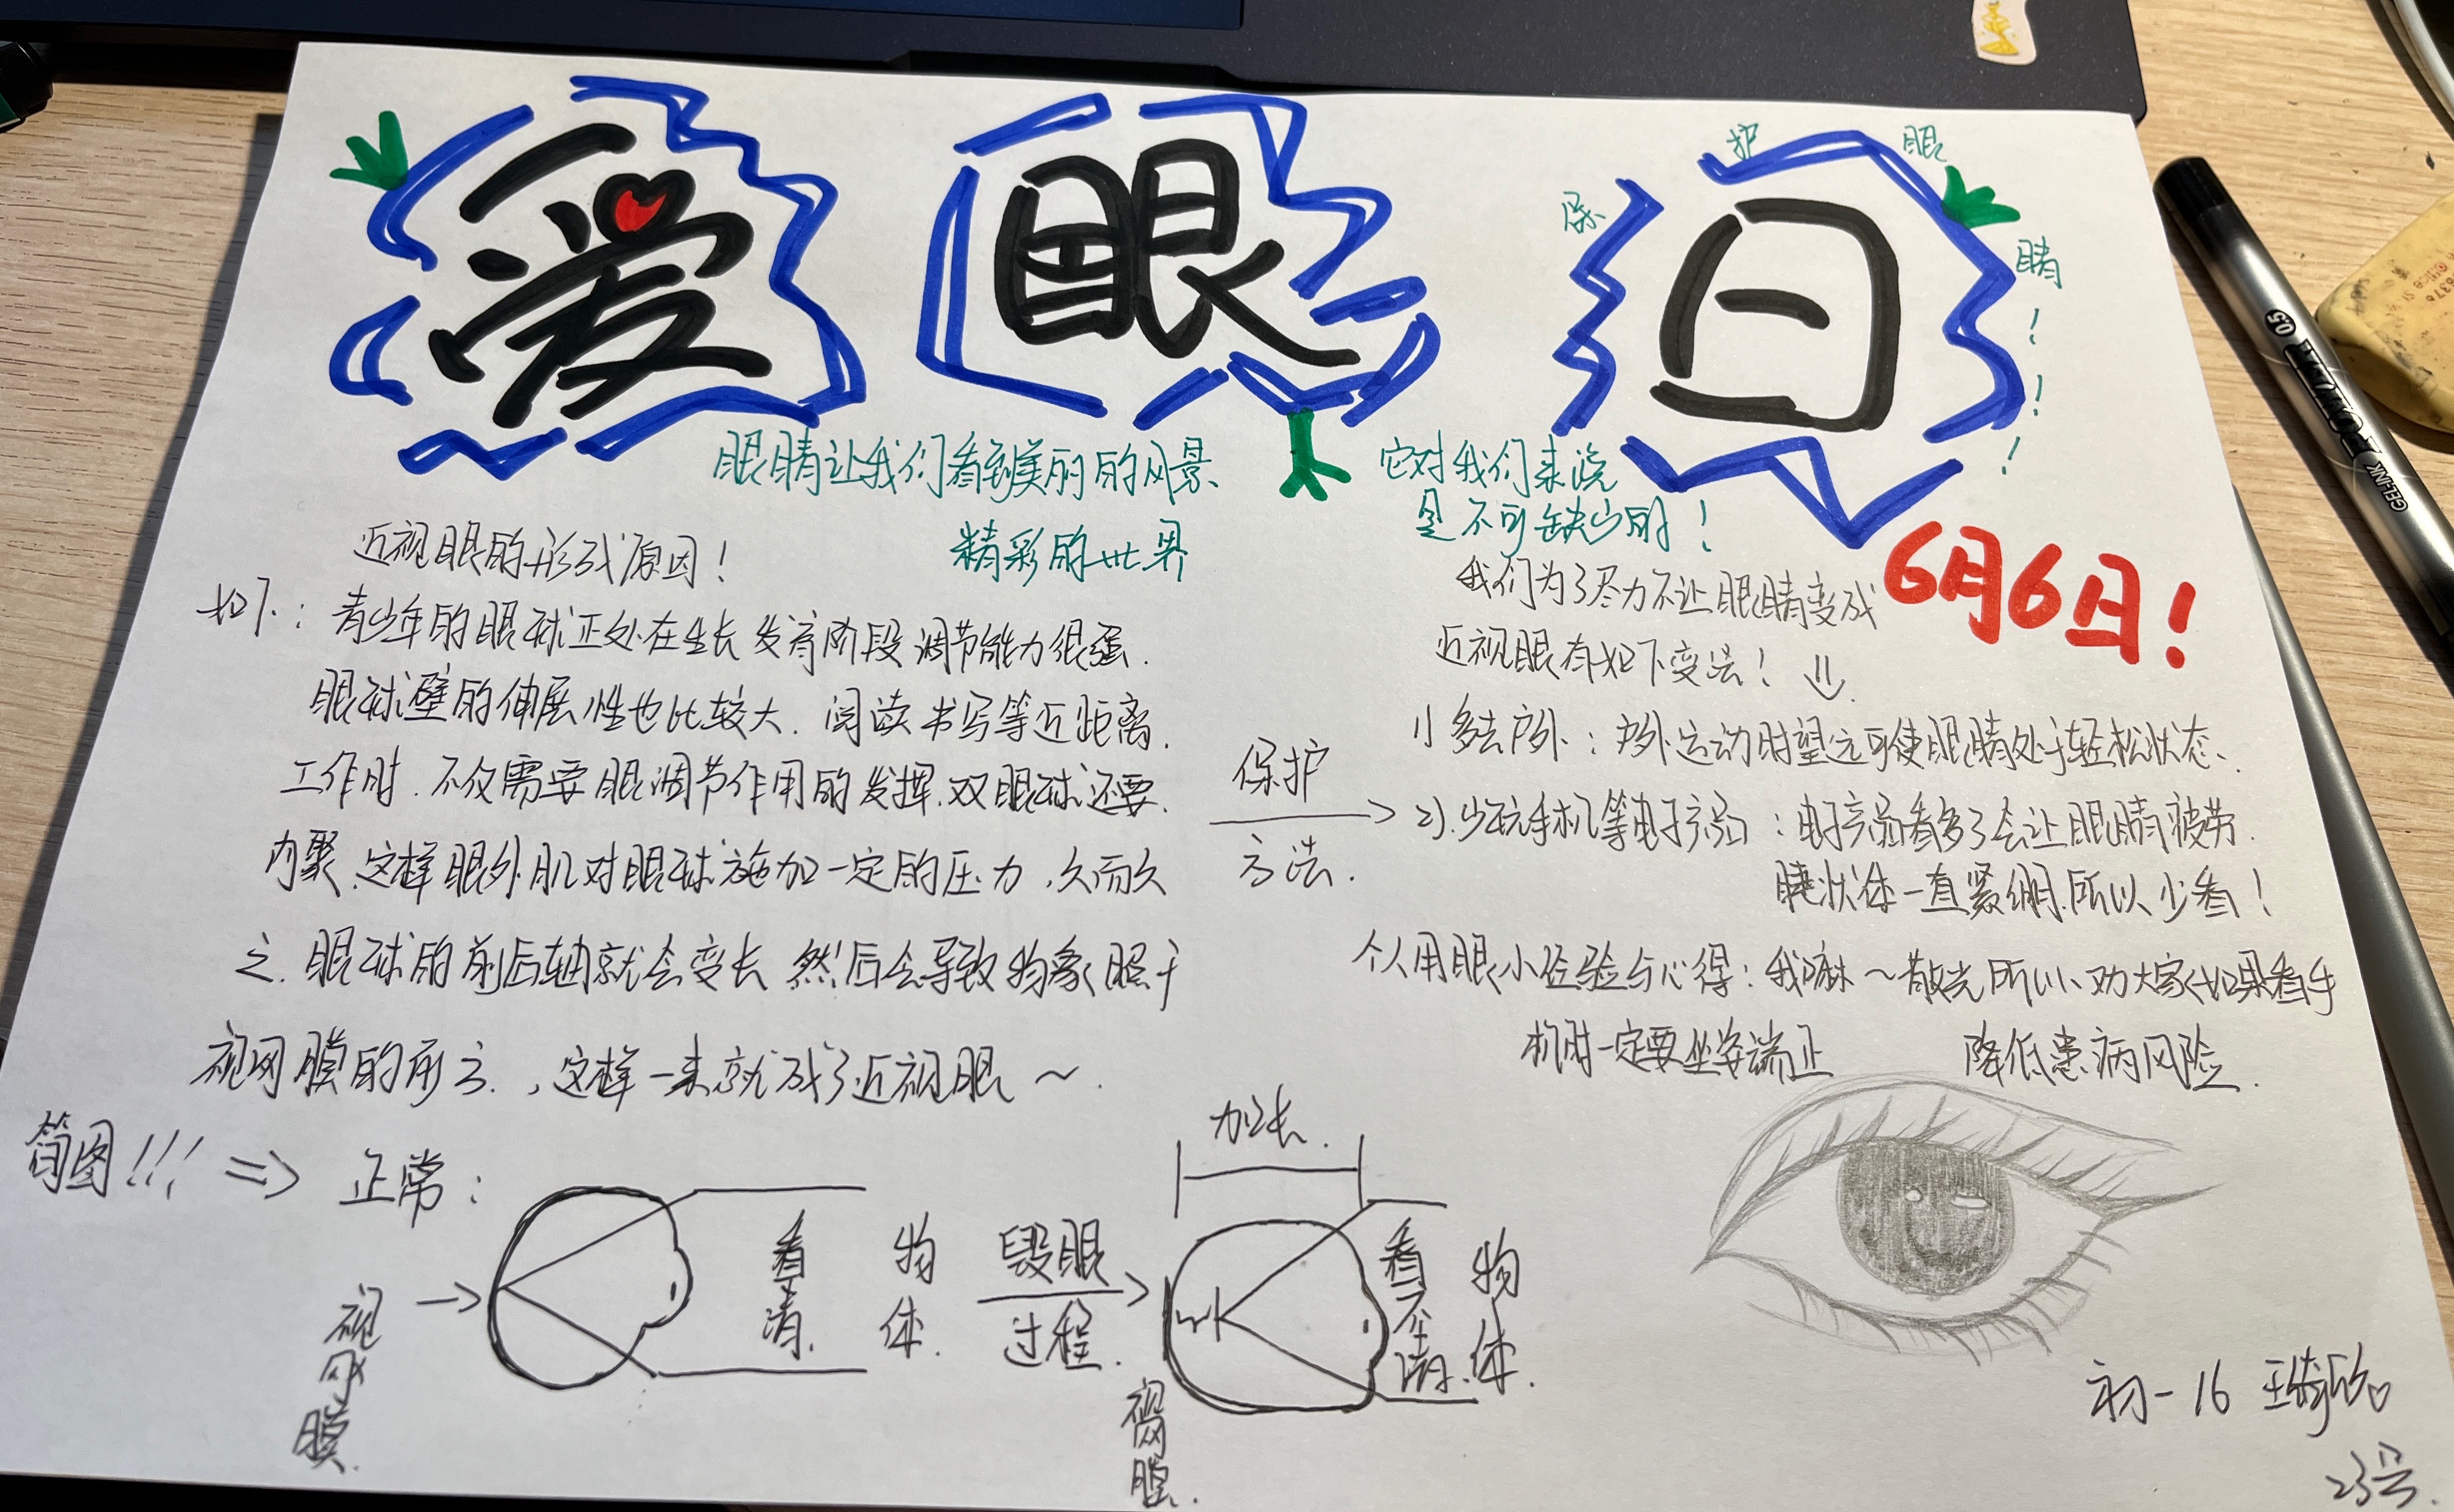 爱眼日
保护眼睛!!!
6月6日!
眼睛让我们看到美丽的风景
精彩的世界
它对我们来说
是不可缺少的!
近视眼的形成原因!
如下:青少年的眼球正处在生长发育阶段调节能力很强.
眼球壁的伸展性也比较大.阅读书写等近距离.
工作时.不仅需要眼调节作用的发挥.双眼球还要.
内聚.这样眼外肌对眼球施加一定的压力,久而久
之.眼球的前后轴就会变长然后会导致物象照于
视网膜的前方.,这样一来就成了近视眼~.
保护
方法.
我们为了尽力不让眼睛变成
近视眼有如下变法!
1)多去户外:户外运动时望远可使眼睛处于轻松状态、
2).少玩手机等电子产品:电子产品看多了会让眼睛疲劳.
睫状体一直紧绷.所以少看!
个人用眼小经验与心得:我嘛~散光所以劝大家如果看手
机时一定要坐姿端正 降低患病风险.
简图!!! => 正常:
视网膜
看清.
物体.
毁眼
过程.
加长.
视网膜.
看不清.
物体.
初一16
23号.
GEL-INK
0.5